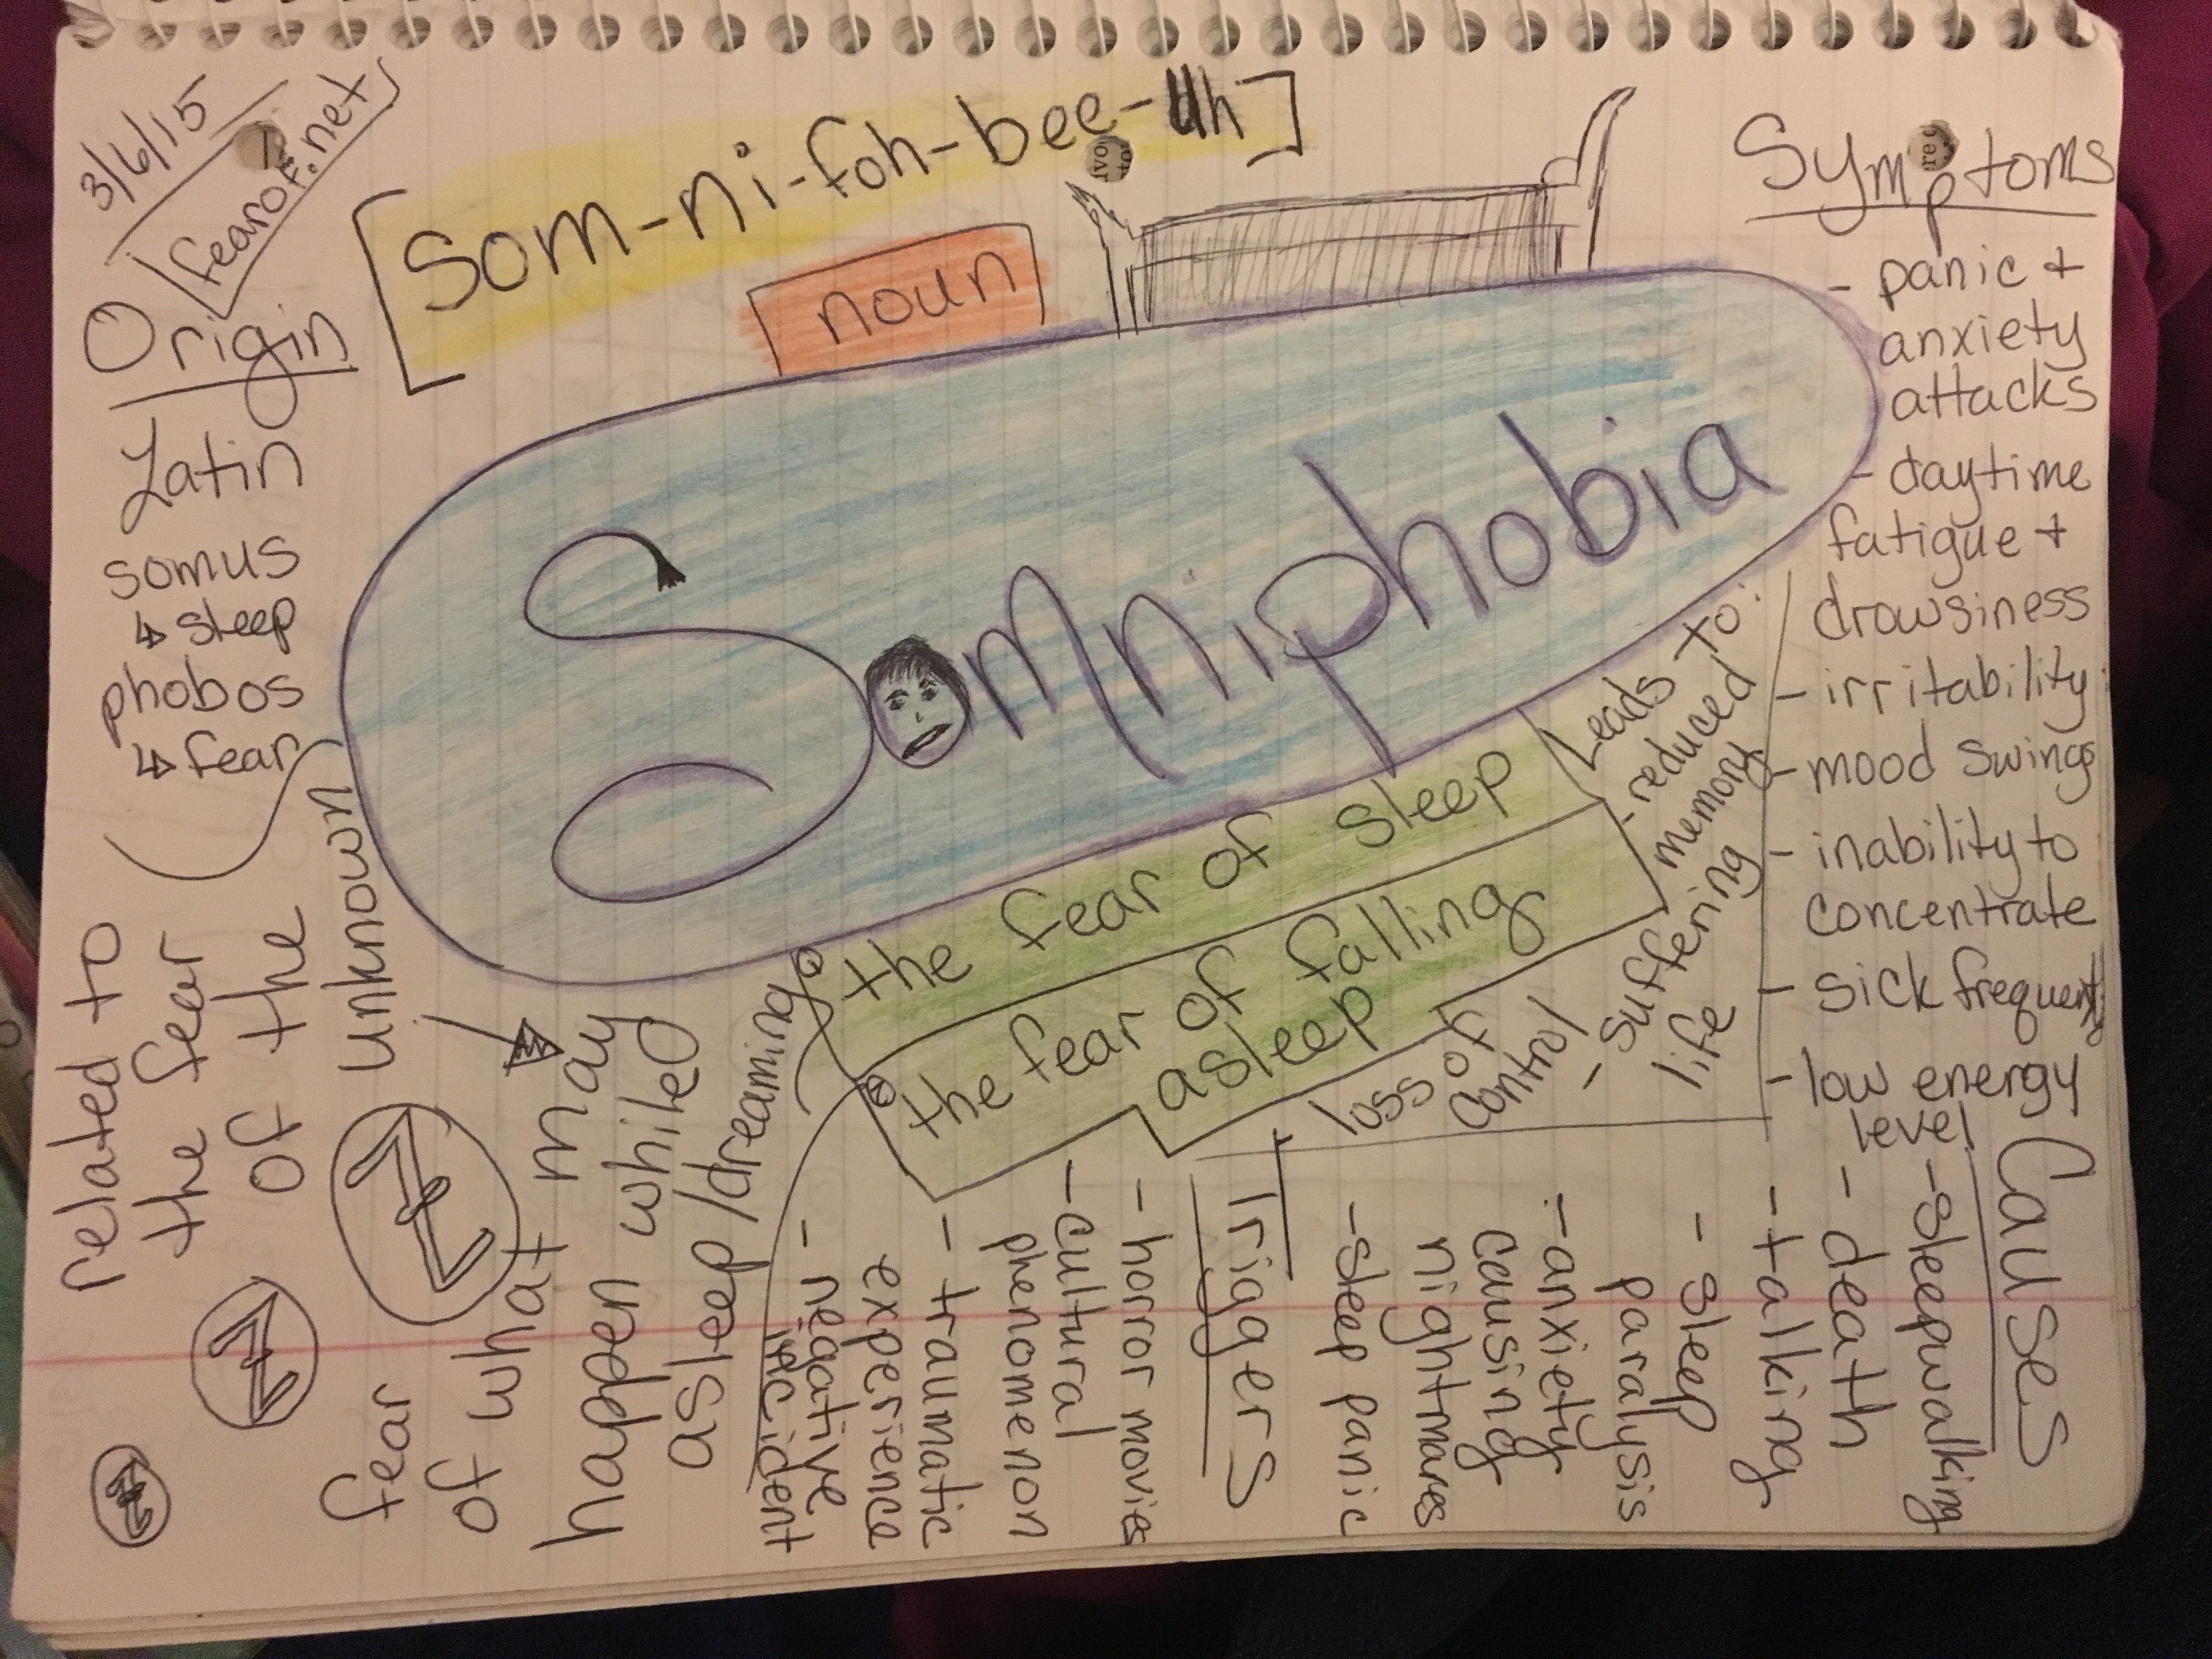 3/6/15
fearof.net
[Som-ni-foh-bee-uh]
noun
Somniphobia
the fear of sleep
the fear of falling
asleep
Origin
Latin
somus
↳ sleep
phobos
↳ fear
related to
the fear
of the
unknown
fear
of what may
happen while
asleep/dreaming
Z
Z
Z
Symptoms
- panic +
anxiety
attacks
- daytime
fatigue +
drowsiness
- irritability
- mood swings
- inability to
concentrate
- sick frequently
- low energy
level
Leads to:
- reduced
memory
- suffering
life
loss
of
control
Causes
- sleepwalking
- death
- talking
- sleep
paralysis
- anxiety
causing
nightmares
- sleep panic
Triggers
- horror movies
- cultural
phenomenon
- traumatic
experience
- negative
incident